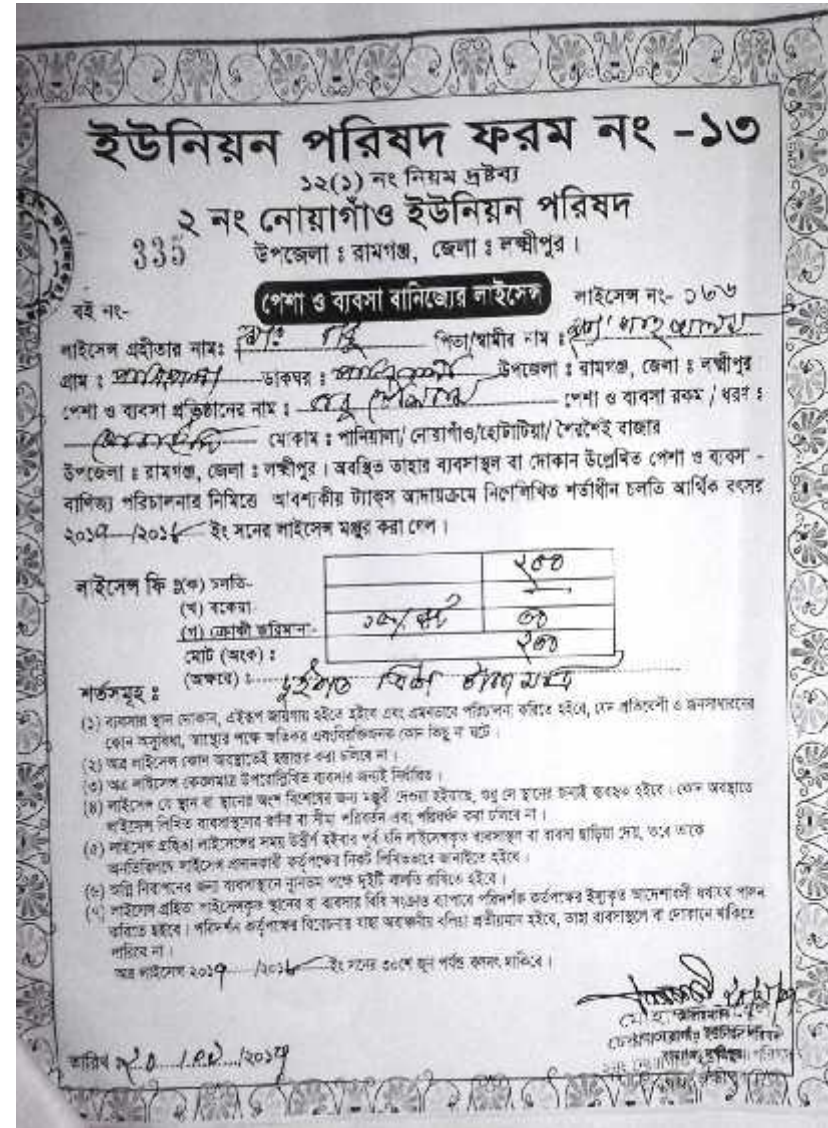 ইউনিয়ন পরিষদ ফরম নং -১৩
১২(১) নং নিয়ম দ্রষ্টব্য
২ নং নোয়াগাঁও ইউনিয়ন পরিষদ
335
উপজেলা ঃ রামগঞ্জ, জেলা ঃ লক্ষ্মীপুর।
পেশা ও ব্যবসা বানিজ্যের লাইসেন্স
বই নং- লাইসেন্স নং- ১৬৬
লাইসেন্স গ্রহীতার নামঃ মোঃ বাবু পিতা/স্বামীর নাম ঃ
গ্রাম ঃ পানিয়ালা ডাকঘর ঃ উপজেলা ঃ রামগঞ্জ, জেলা ঃ লক্ষ্মীপুর
পেশা ও ব্যবসা প্রতিষ্ঠানের নাম ঃ বাবু পেশা ও ব্যবসা রকম / ধরণ ঃ
মোকাম ঃ পানিয়ালা/ নোয়াগাঁও/হোটাটিয়া/ শৈরশৈই বাজার
উপজেলা ঃ রামগঞ্জ, জেলা ঃ লক্ষ্মীপুর। অবস্থিত তাহার ব্যবসাস্থল বা দোকান উল্লেখিত পেশা ও ব্যবসা -
বাণিজ্য পরিচালনার নিমিত্তে আবশ্যকীয় ট্যাক্স আদায়ক্রমে নিম্নেলিখিত শর্তাধীন চলতি আর্থিক বৎসর
২০১৭/২০১৮ ইং সনের লাইসেন্স মঞ্জুর করা গেল।
লাইসেন্স ফি ঃ(ক) চলতি- ২০০
(খ) বকেয়া-
(গ) ক্রোকী জরিমানা- ১৫% ভ্যাট ৩০
মোট (অংক) ঃ ২৩০
(অক্ষরে) ঃ দুইশত ত্রিশ টাকা মাত্র
শর্তসমূহ ঃ
(১) ব্যবসার স্থান দোকান, এইরূপ জায়গায় হইতে হইবে এবং এমনভাবে পরিচালনা করিতে হইবে, যেন প্রতিবেশী ও জনসাধারনের
কোন অসুবিধা, স্বাস্থ্যের পক্ষে ক্ষতিকর এবংবিরক্তিজনক কোন কিছু না ঘটে।
(২) অত্র লাইসেন্স কোন অবস্থাতেই হস্তান্তর করা চলিবে না।
(৩) অত্র লাইসেন্স কেবলমাত্র উপরোল্লিখিত ব্যবসার জন্যই নির্ধারিত।
(৪) লাইসেন্স যে স্থান বা স্থানের অংশ বিশেষের জন্য মঞ্জুরী দেওয়া হইয়াছে, শুধু সে স্থানের জন্যই ব্যবহৃত হইবে। কোন অবস্থাতে
লাইসেন্স লিখিত ব্যবসাস্থলের বর্ণিত বা সীমা পরিবর্তন এবং পরিবর্ধন করা চলিবে না।
(৫) লাইসেন্স গ্রহিতা লাইসেন্সের সময় উত্তীর্ণ হইবার পূর্ব যদি লাইসেন্সকৃত ব্যবসাস্থল বা ব্যবসা ছাড়িয়া দেয়, তবে তাকে
অনতিবিলম্বে লাইসেন্স প্রদানকারী কর্তৃপক্ষের নিকট লিখিতভাবে জানাইতে হইবে।
(৬) অগ্নি নিবাপনের জন্য ব্যবসাস্থানে নূন্যতম পক্ষে দুইটি বালতি রাখিতে হইবে।
(৭) লাইসেন্স গ্রহিতা লাইসেন্সকৃত স্থানের বা ব্যবসার বিধি সংক্রান্ত ব্যাপারে পরিদর্শক কর্তৃপক্ষের ইস্যুকৃত আদেশাবলী যথাযথ পালন
করিতে হইবে। পরিদর্শন কর্তৃপক্ষের বিবেচনায় যাহা অবাঞ্চনীয় বলিয়া প্রতীয়মান হইবে, তাহা ব্যবসাস্থলে বা দোকানে থাকিতে
পারিবে না।
অত্র লাইসেন্স ২০১৭/২০১৮ ইং সনের ৩০শে জুন পর্যন্ত বলবৎ থাকিবে।
তারিখ /২০১৭